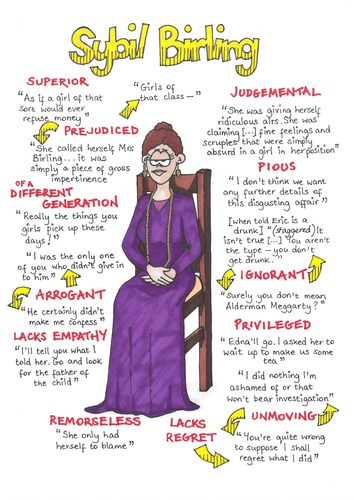 Sybil Birling
SUPERIOR
"As if a girl of that
sort would ever
refuse money"
"Girls of
that class—"
PREJUDICED
"She called herself Mrs
Birling... It was
simply a piece of gross
impertinence
OF A
DIFFERENT
GENERATION
"Really the things you
girls pick up these
days!"
"I was the only one
of you who didn't give in
to him"
ARROGANT
"He certainly didn't
make me confess"
LACKS EMPATHY
"I'll tell you what I
told her. Go and look
for the father of
the child"
REMORSELESS
"She only had
herself to blame"
JUDGEMENTAL
"She was giving herself
ridiculous airs. She was
claiming [...] fine feelings and
scruples that were simply
absurd in a girl in her position"
PIOUS
"I don't think we want
any further details of
this disgusting affair"
[when told Eric is a
drunk] "(staggered) It
isn't true [...] You aren't
the type – you don't
get drunk."
IGNORANT
"Surely you don't mean
Alderman Meggarty?"
PRIVILEGED
"Edna'll go. I asked her to
wait up to make us some
tea"
"I did nothing I'm
ashamed of or that
won't bear investigation"
UNMOVING
LACKS
REGRET
"You're quite wrong
to suppose I shall
regret what I did"